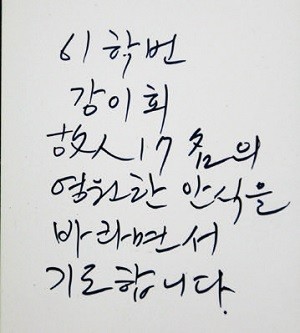 61학번
강이회
故人17名의
영원한 안식을
바라면서
기도합니다.